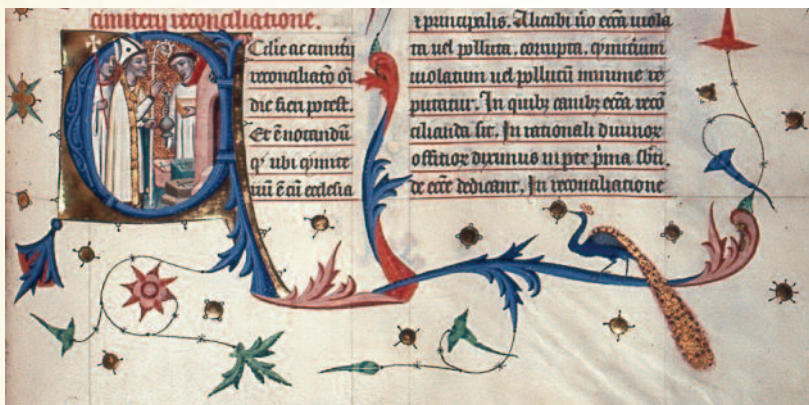 cimiterij reconciliatione.
Ecclie ac cimitij
reconciliatō
die fieri potest.
Et ē notandū
q ubi cymite
riū ē cū ecclesia
principalis. Alicubi uō ecca uiola
ta uel polluta, corrupta, cymitium
uiolatum uel pollutū minime re
putatur. In quibz casibz ecca reco
cilianda sit. In rationali diuinoꝝ
offitioꝝ diximus in pte p̄ma
de ecce dedicant. In reconciliatione